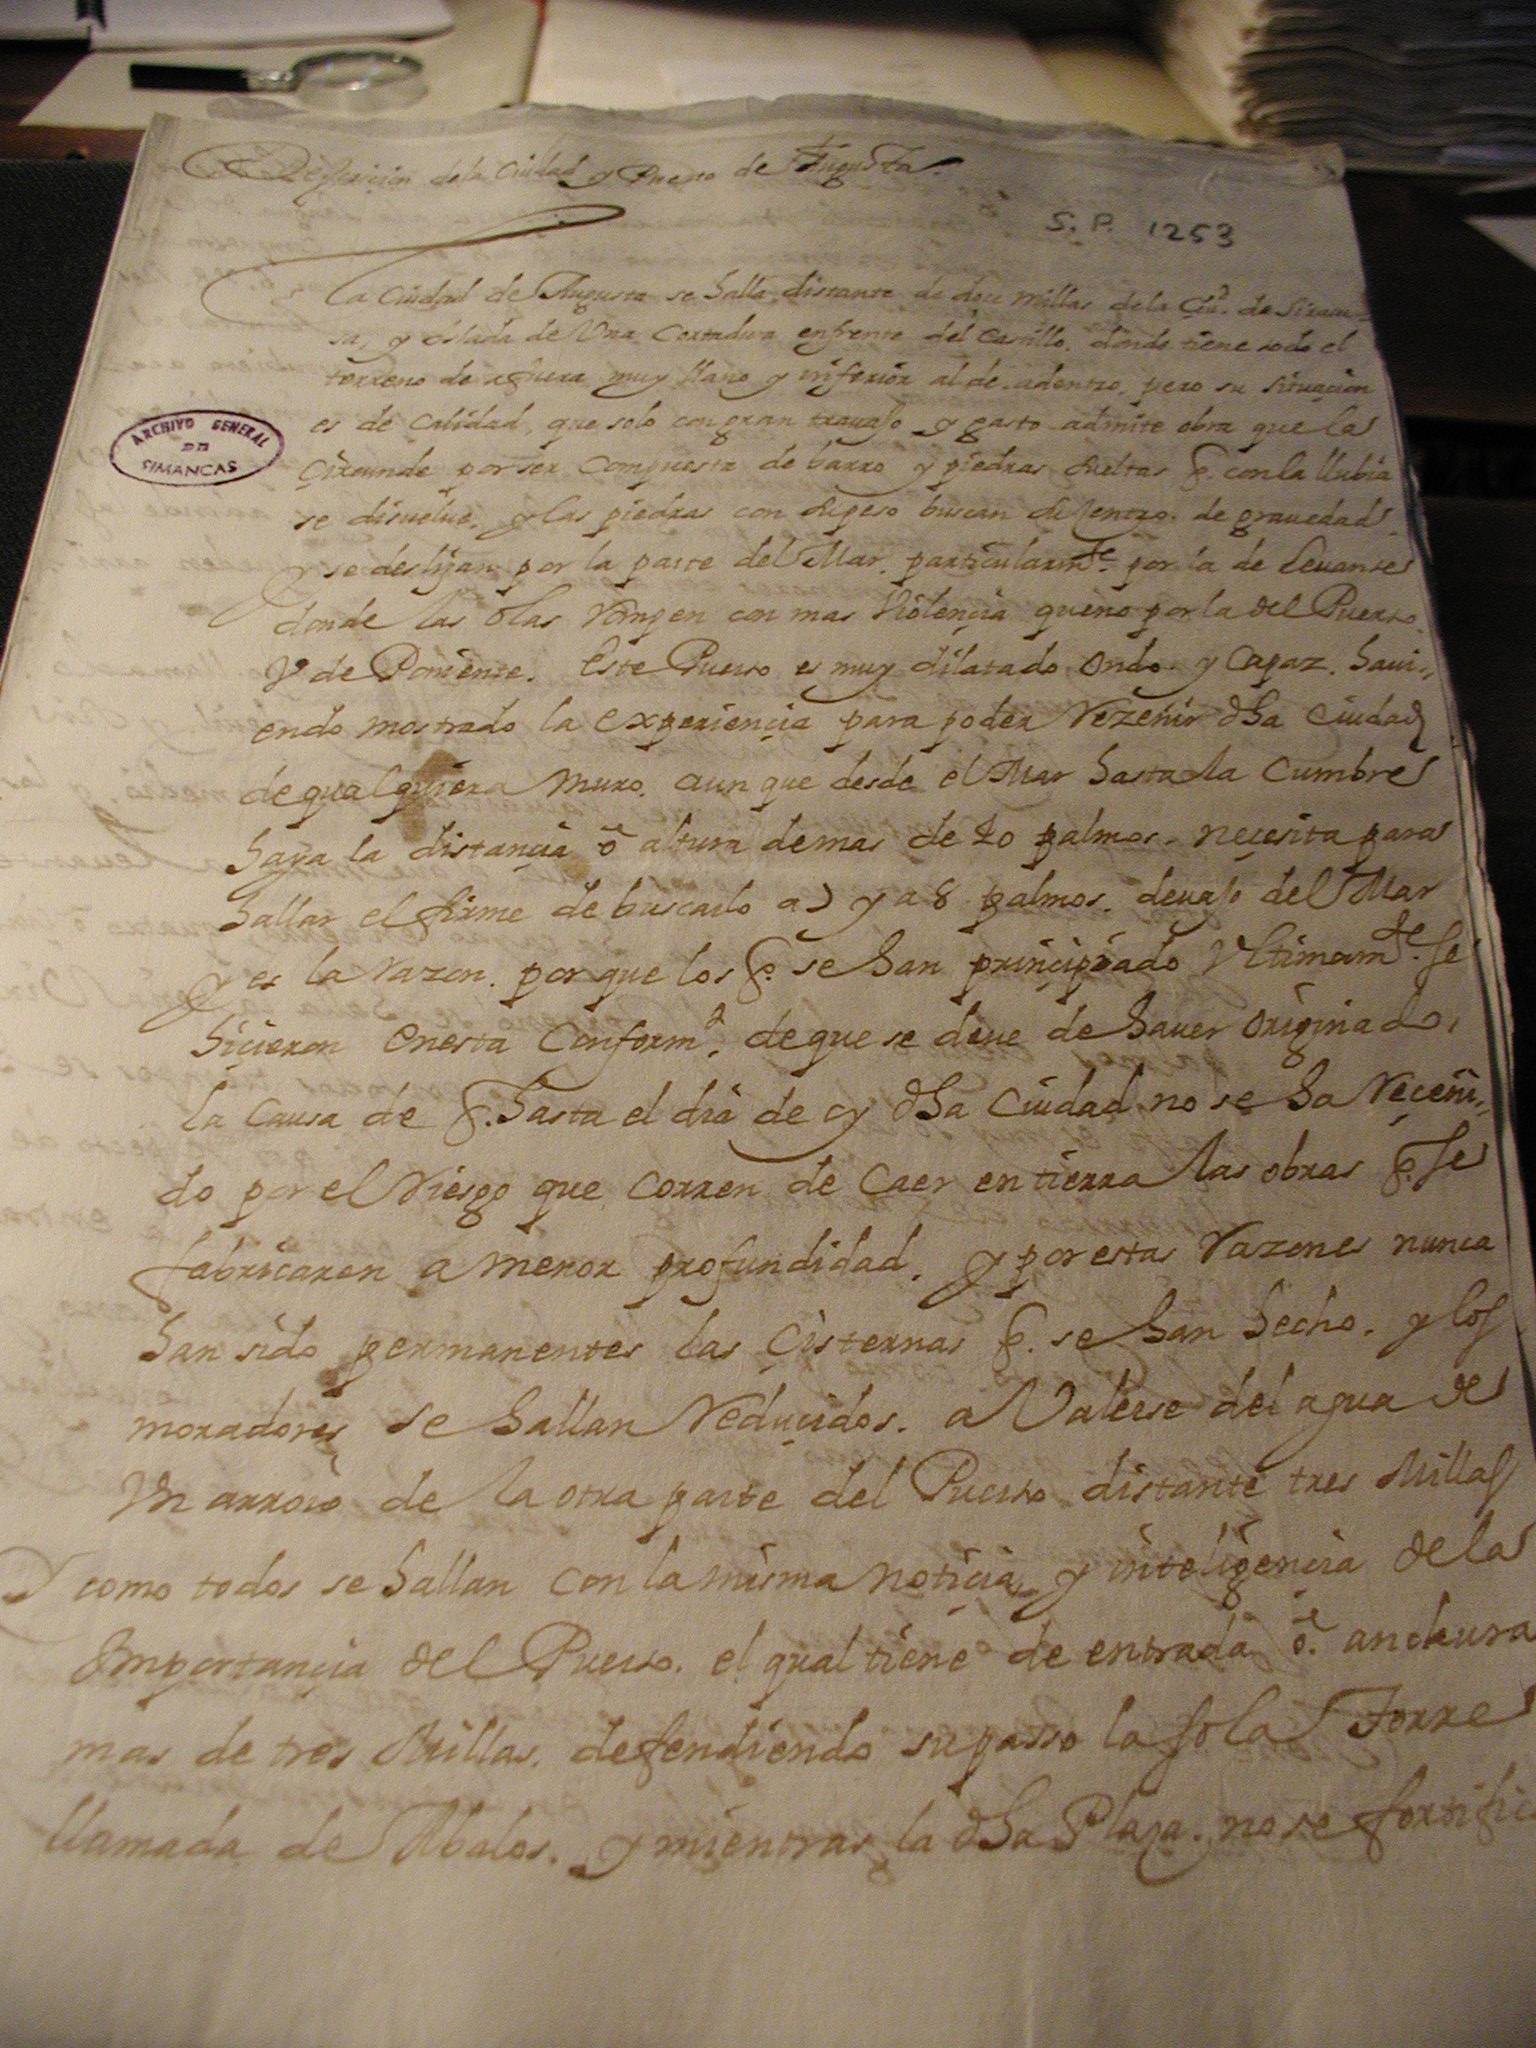 Descripcion de la Ciudad y Puerto de Augusta.
S. P. 1253
La Ciudad de Augusta se halla distante de doce millas de la Ciud. de Siracu-
sa, y aslada de Una Cortadura enfrente del Castillo. donde tiene todo el
terreno de afuera muy llano y inferior al de adentro, pero su situacion
es de Calidad, que solo con gran travajo y gasto admite obra que la
Çircunde por ser Compuesta de barro y piedras sueltas q. con la llubia
se disuelve, y las piedras con su peso buscan su Zentro de gravedad
y se deslizan por la parte del Mar, particularmte. por la de Levante
donde las olas rompen con mas Violençia que no por la del Puerto
Y de Poniente. Este Puerto es muy dilatado ondo y Capaz. havi-
endo mostrado la experiençia para poder rezeñir dha Ciudad
de qual quiera muro. aun que desde el Mar hasta la Cumbre
haya la distançia ô altura de mas de 20 palmos. neçesita para
hallar el firme de buscarlo a 7 y a 8 palmos. devajo del Mar
y es la razon. por que los q. se han prinçipiado Ultimamte. se
hiçieron en esta Conformd. de que se deve de haver originado,
la Causa de q. hasta el dia de oy dha Ciudad no se ha reçeñi-
do por el riesgo que corren de Caer en tierra las obras q. se
fabricaren a menor profundidad. y por estas razones nunca
han sido permanentes las Çisternas q. se han hecho. y los
moradores se hallan reduçidos. a Valerse del agua de
Un arroio de la otra parte del Puerto distante tres Millas
Y como todos se hallan con la misma notiçia, y inteligençia de la
Importançia del Puerto. el qual tiene de entrada ô. anchura
mas de tres Millas. defendiendo su passo la sola Torre
llamada de Abalos. y mientras la dha Plaza. no se fortifi
ARCHIVO GENERAL
DE
SIMANCAS